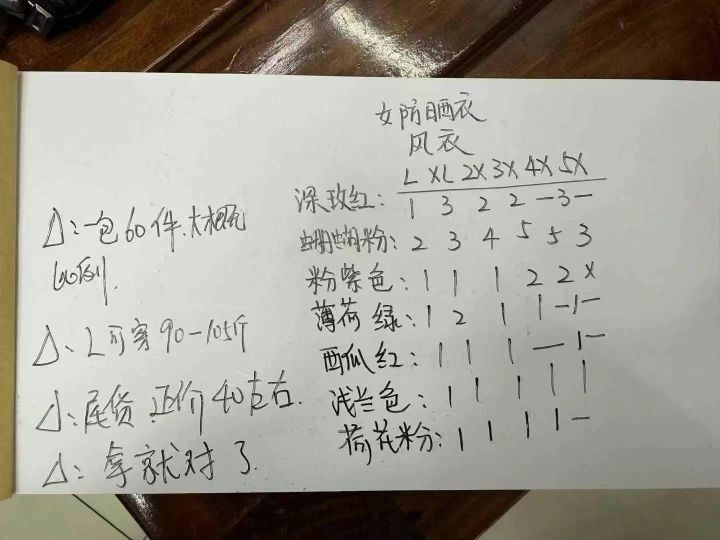 女防晒衣
风衣
L XL 2X 3X 4X 5X
深玫红: 1 3 2 2 —3—
蝴蝴粉: 2 3 4 5 5 3
粉紫色: 1 1 1 2 2 x
薄荷绿: 1 2 1 1 —1—
西瓜红: 1 1 1 — 1—
浅兰色: 1 1 1 1 1
荷花粉: 1 1 1 1 —
△: 一包60件.大概
比例.
△、L可穿90-105斤
△: 尾货.正价40左右.
△: 拿就对了.